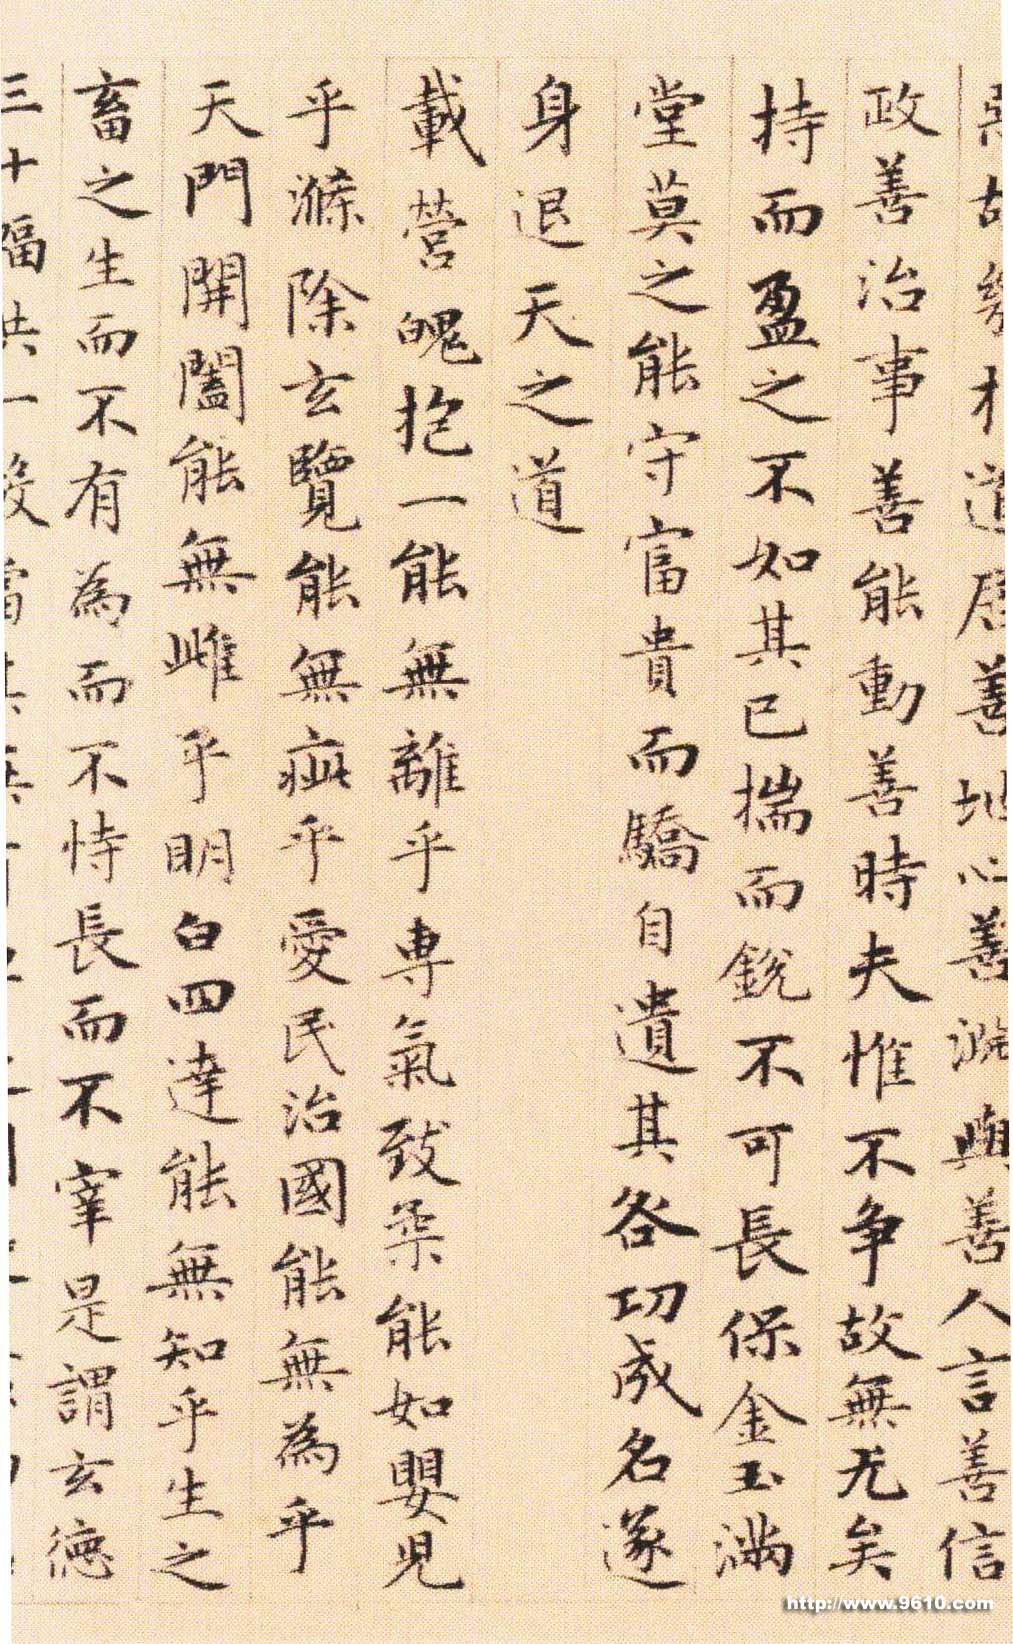 惡故幾於道居善地心善渊與善人言善信
政善治事善能動善時夫惟不争故無尤矣
持而盈之不如其已揣而銳不可長保金玉滿
堂莫之能守富貴而驕自遺其咎功成名遂
身退天之道
載營魄抱一能無離乎専氣致柔能如嬰兒
乎滌除玄覽能無疵乎愛民治國能無為乎
天門開闔能無雌乎明白四達能無知乎生之
畜之生而不有為而不恃長而不宰是謂玄德
三十輻共一轂當其無
http://www.9610.com